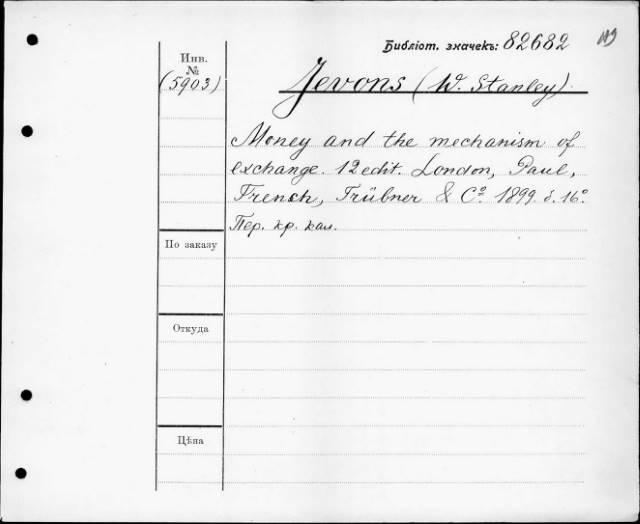 Библіот. значекъ: 82682
Инв.
№
(5903)
Jevons (W. Stanley)
Money and the mechanism of
exchange. 12 edit. London, Paul,
French, Trübner & Cº. 1899. 8. 16º.
Пер. кр. кал.
По заказу
Откуда
Цѣна